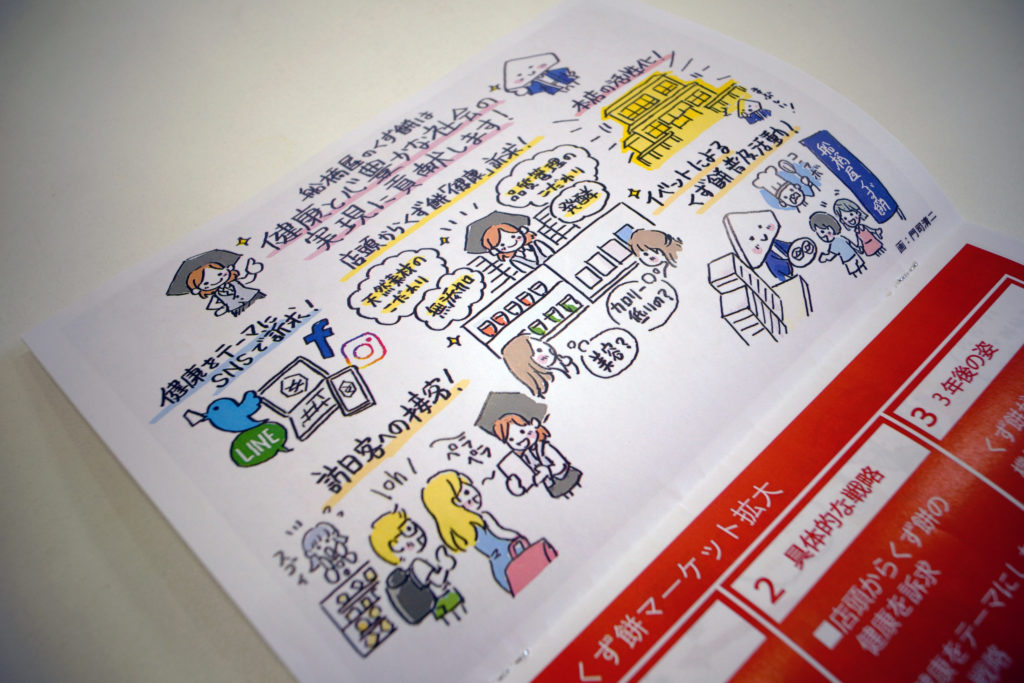 船橋屋のくず餅は
健康と心豊かな社会の
実現に貢献します！
本店の活性化！
まぶしい！
健康をテーマに
SNSで訴求！
LINE
店頭からくず餅健康訴求！
天然素材の
こだわり
無添加
の
こだわり
発酵
カロリー
低いの？
美容？
イベントによる
くず餅普及活動！
船橋屋くず餅
画：門司凛二
訪日客への接客！
oh！
ペラ
ペラ
くず餅マーケット拡大
2 具体的な戦略
■店頭からくず餅の
健康を訴求
健康をテーマにし
戦略
3 3年後の姿
くず餅